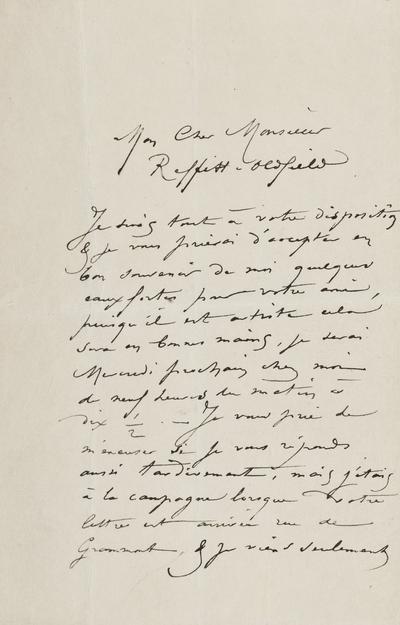 Mon Cher Monsieur
Reffitt-Oldfield
Je suis tout à votre disposition
& je vous prierai d'accepter en
bon souvenir de moi quelques
eaux fortes pour votre ami,
puisqu'il est artiste cela
sera en bonnes mains, je serai
Mercredi prochain chez moi
de neuf heures du matin à
dix 1/2. — Je vous prie de
m'excuser si je vous réponds
aussi tardivement, mais j'étais
à la campagne lorsque votre
lettre est arrivée rue de
Grammont, & je viens seulement